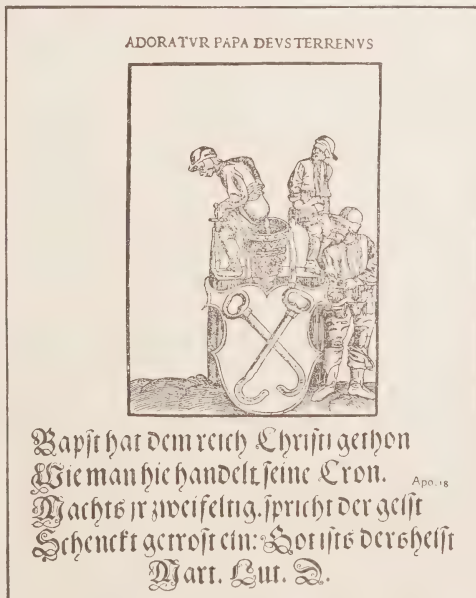 ADORATVR PAPA DEVS TERRENVS
Bapst hat dem reich Christi gethon
Wie man hie handelt seine Cron.
Apo. 18
Machts jr zweifeltig. spricht der geist
Schenckt getrost ein: Got ists ders heist
Mart. Lut. D.